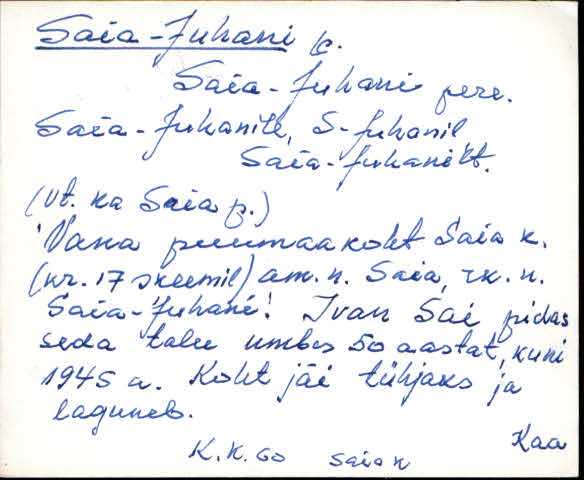 Saia-Juhani k.
Saia-Juhani pere.
Saia-Juhanile, S-Juhanil
Saia-Juhanilt.
(vt. ka Saia p.)
Vana puumaakoht Saia k.
(nr. 17 skeemil) am. n. Saia, rk. n.
Saia-Juhani! Ivan Sai pidas
seda talu umbes 50 aastat, kuni
1945 a. Koht jäi tühjaks ja
laguneb.
Kaa
K. K. 60 Saia k